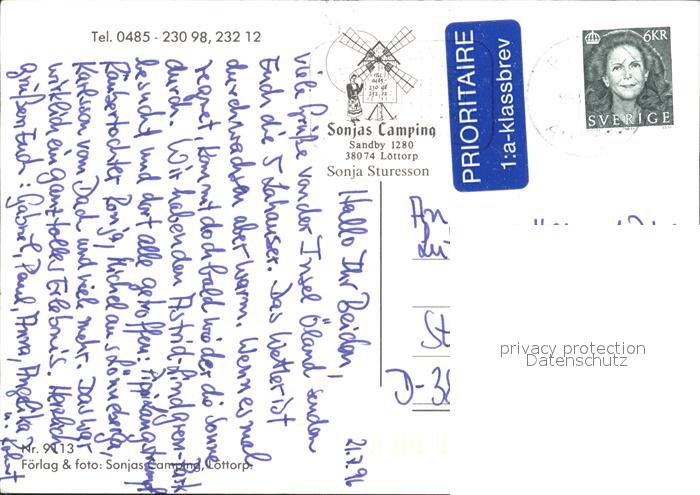 Tel. 0485 - 230 98, 232 12
Sonjas Camping
Sandby 1280
38074 Löttorp
Sonja Sturesson
PRIORITAIRE
1:a-klassbrev
6KR
SVERIGE
21.7.96
Hallo Ihr Beiden,
viele Grüße von der Insel Öland senden
Euch die 5 Zahauser. Das Wetter ist
durchwachsen aber warm. Wenn es mal
regnet, kommt doch bald wieder die Sonne
durch. Wir haben den Astrid-Lindgren-Park
besucht und dort alle getroffen: Pippi Langstrumpf
Räubertochter Ronja, Michel aus Lönneberga,
Karlsson vom Dach und viele mehr. Das war
wirklich ein ganz tolles Erlebnis. Herzlich
grüßen Euch: Gabriel, Paul, Anna, Angelika
u.
An
St
D-38
privacy protection
Datenschutz
Nr. 9113
Förlag & foto: Sonjas Camping, Löttorp.